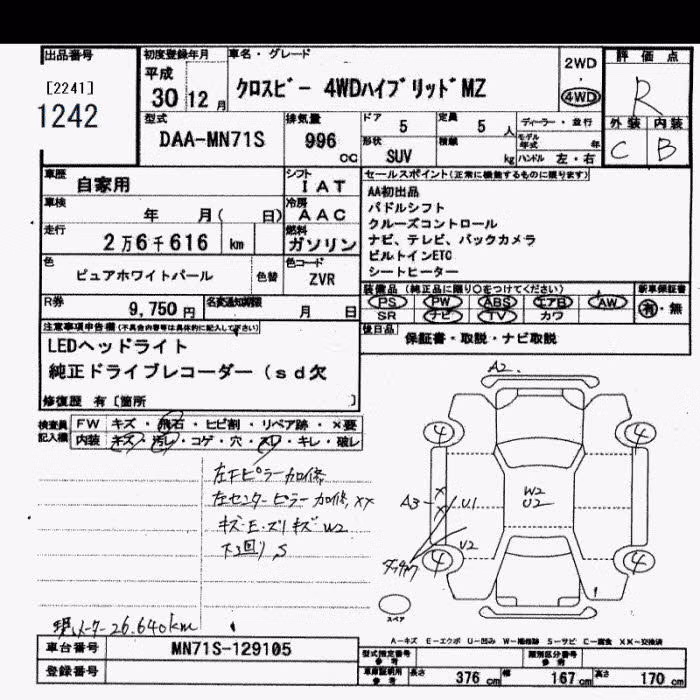 出品番号
[2241]
1242
初度登録年月
平成
30 12 月
車名・グレード
クロスビー 4WDハイブリッドMZ
2WD
・
4WD
評価点
R
外装 内装
C B
型式
DAA-MN71S
排気量
996
cc
ドア
5
定員
5 人
ディーラー・並行
モデル年式 年
形状
SUV
積載
kg
ハンドル 左・右
車歴
自家用
シフト
IAT
車検
年 月( 日)
冷房
AAC
走行
2万6千616 km
燃料
ガソリン
色
ピュアホワイトパール
色替
色コード
ZVR
R券
9,750 円
名変通知期限
月 日
セールスポイント(正常に機能するものに限ります)
AA初出品
パドルシフト
クルーズコントロール
ナビ、テレビ、バックカメラ
ビルトインETC
シートヒーター
装備品 (純正品に限り○をつけてください)
PS PW ABS エアB AW
SR ナビ TV カワ
新車保証書
有・無
後日品
保証書・取説・ナビ取説
注意事項申告欄(不具合内容等は具体的に記入して下さい)
LEDヘッドライト
純正ドライブレコーダー(sd欠
修復歴 有〔箇所 〕
検査員
記入欄
FW キズ・飛石・ヒビ割・リペア跡・×要
内装 キズ・汚れ・コゲ・穴・スレ・キレ・破レ
左F ピラー加修
左センターピラー加修, XX
キズ・E・ズリキズ W2
下回り S
現メーター26.640km
A2
4
4
A3
×
×
U1
W2
U2
U2
4
4
スペア
A−キズ E−エクボ U−凹み W−補修跡 S−サビ C−腐食 XX−交換済
車台番号
MN71S-129105
登録番号
型式指定番号
参考
類別区分番号
参考
車庫証明用
参考
長さ 376 cm 幅 167 cm 高さ 170 cm